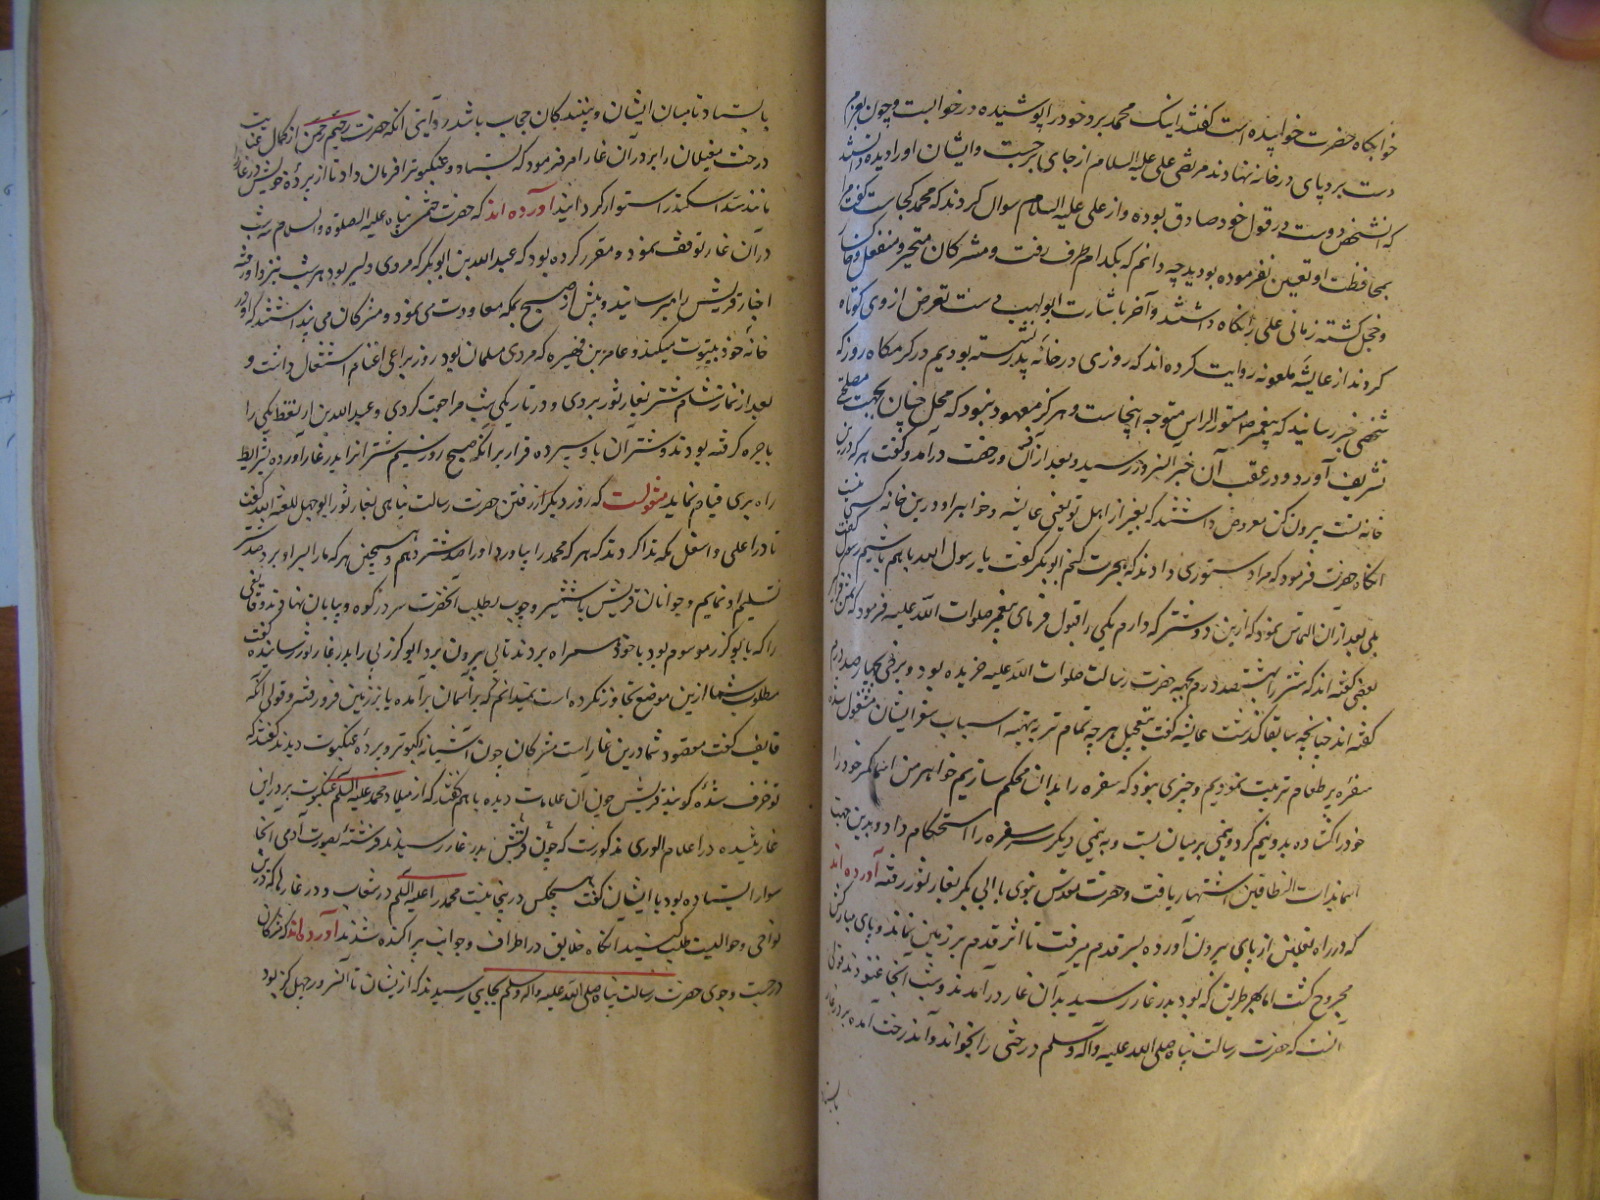 خوابگاه حضرت خوابیده است گفتند اینک محمد برد خود را پوشیده در خوابست و چون بعزم
دست برد پای در خانه نهادند مرتضی علی علیه السلام از جای برجست و ایشان او را دیده دانستند
که آنشخص دوست در قول خود صادق بوده و از علی علیه السلام سوال کردند که محمد کجاست گفت مرا
بمحافظت او تعیین نفرموده بودید چه دانم که بکدام طرف رفت و مشرکان متحیر و منفعل
و خجل گشته زمانی علی را نگاه داشتند و آخر باشارت ابولهب دست تعرض از وی کوتاه
کردند از عایشه ملعونه روایت کرده اند که روزی در خانه پدر نشسته بودیم در کرمگاه روز که
شخصی خبر رسانید که پیغمبر مقنع الراس متوجه اینجاست و هرگز معهود نبود که محل چنان بجهت مصلحتی
تشریف آورد و در عقب آن خبر آنسرور رسید و بعد از آن رخصت درآمد و گفت هر که درین
خانه تست بیرون کن معروض داشتند که بغیر از اهل تو یعنی عایشه و خواهر او درین خانه کسی نیست
آنگاه حضرت فرمود که مرا دستوری دادند که هجرت کنم ابوبکر گفت یا رسول الله باهم باشیم رسول گفت
بلی بعد از آن التماس نمود که ازین دو شتر که دارم یکی را قبول فرمای پیغمبر صلوات الله علیه فرمود که بثمن
بعضی گفته اند که شتر را بهشتصد درم بجهة حضرت رسالت صلوات الله علیه خریده بود و برخی بچهارصد درم
گفته اند چنانچه سابقا گذشت عایشه گفت بتعجیل هرچه تمام تر به تهیه اسباب سفر ایشان مشغول شده
سفره پر طعام ترتیب نمودیم و چیزی نبود که سفره را بدان محکم سازیم خواهر من اسما کمر خود را
خود را گشاده بدو نیم کرد و نیمی بر میان بست و به نیمی دیگر سر سفره را استحکام داد و بدین جهت
اسما بذات النطاقین اشتهار یافت و حضرت مقدس نبوی با ابی بکر بغار ثور رفته آورده اند
که در راه نعلین از پای بیرون آورده بسر قدم میرفت تا اثر قدم بر زمین نماند و پای مبارکش
مجروح گشت اما بهر طریق که بود بدر غار رسید بدان غار درآمدند و شب آنجا غنودند قولی
آنست که حضرت رسالت پناه صلی الله علیه و آله و سلم درختی را بخواند و آن درخت آمده بر در غار
بایستاد
بایستاد تا میان ایشان و بینندگان حجاب باشد روایتی آنکه حضرت رحیم رحمن از کمال عنایت
درخت مغیلان را بر در آن غار امر فرمود که بایستاد و عنکبوتی را فرمان داد تا از پرده خویش در غار
مانند سد اسکندر استوار گردانید آورده اند که حضرت ختمی پناه علیه الصلوة و السلام سه شب
در آن غار توقف نموده مقرر کرده بود که عبدالله بن ابوبکر که مردی دلیر بود هر شب نزد او رفته
اخبار قریش را میرسانید و پیش از صبح بمکه معاودت می نمود و مشرکان می پنداشتند که او در
خانه خود بیتوت میکند و عامر بن فهیره که مردی مسلمان بود روز براعی اغنام اشتغال داشت و
بعد از نماز شام شتر بغار ثور بردی و در تاریکی شب مراجعت کردی و عبدالله بن اریقط یکی را
باجره گرفته بودند و شتران باو سپرده قرار بر آنکه صبح روز سیم شتر انرا بدر غار آورده بشرایط
راه بری قیام نماید منقولست که روز دیگر از رفتن حضرت رسالت پناهی بغار ثور ابوجهل لعنة الله گفت
تا در اعلی و اسفل مکه ندا کردند که هر که محمد را بیاورد او را صد شتر دهم و همچنین هر که ما را بسر او برد صد شتر
تسلیم او نمایم و جوانان قریش با شمشیر و چوب بطلب آنحضرت سر در کوه و بیابان نهادند و قایفی
را که بابو کرز موسوم بود با خود همراه بردند تا پی بیرون برد ابو کرز پی را بدر غار ثور رسانیده گفت
مطلوب شما ازین موضع تجاوز نکرده است نمیدانم که بر آسمان برآمده یا بزمین فرو رفته و قولی آنکه
قایف گفت مقصود شما درین غار است مشرکان چون آشیانه کبوتر و پرده عنکبوت دیدند گفتند که
تو خرف شدهٔ گویند قریش چون آن علامات دیده باهم گفتند که از میلاد محمد علیه السلم عنکبوت بر در این
غار تنیده در اعلام الوری مذکورست که چون قریش بدر غار رسیدند فرشتهٔ بصورت آدمی آنجا
سوار ایستاده بود با ایشان گفت هیچکس درینجا نیست محمد را علیه السلم در شعاب و در غارها که درین
نواحی و حوالیست طلب کنید آنگاه خلایق در اطراف و جوانب پراکنده شدند آورده اند که مشرکان
در جست و جوی حضرت رسالت پناه صلی الله علیه و آله و سلم بجایی رسیدند که از ایشان تا آنسرور چهل گز بود